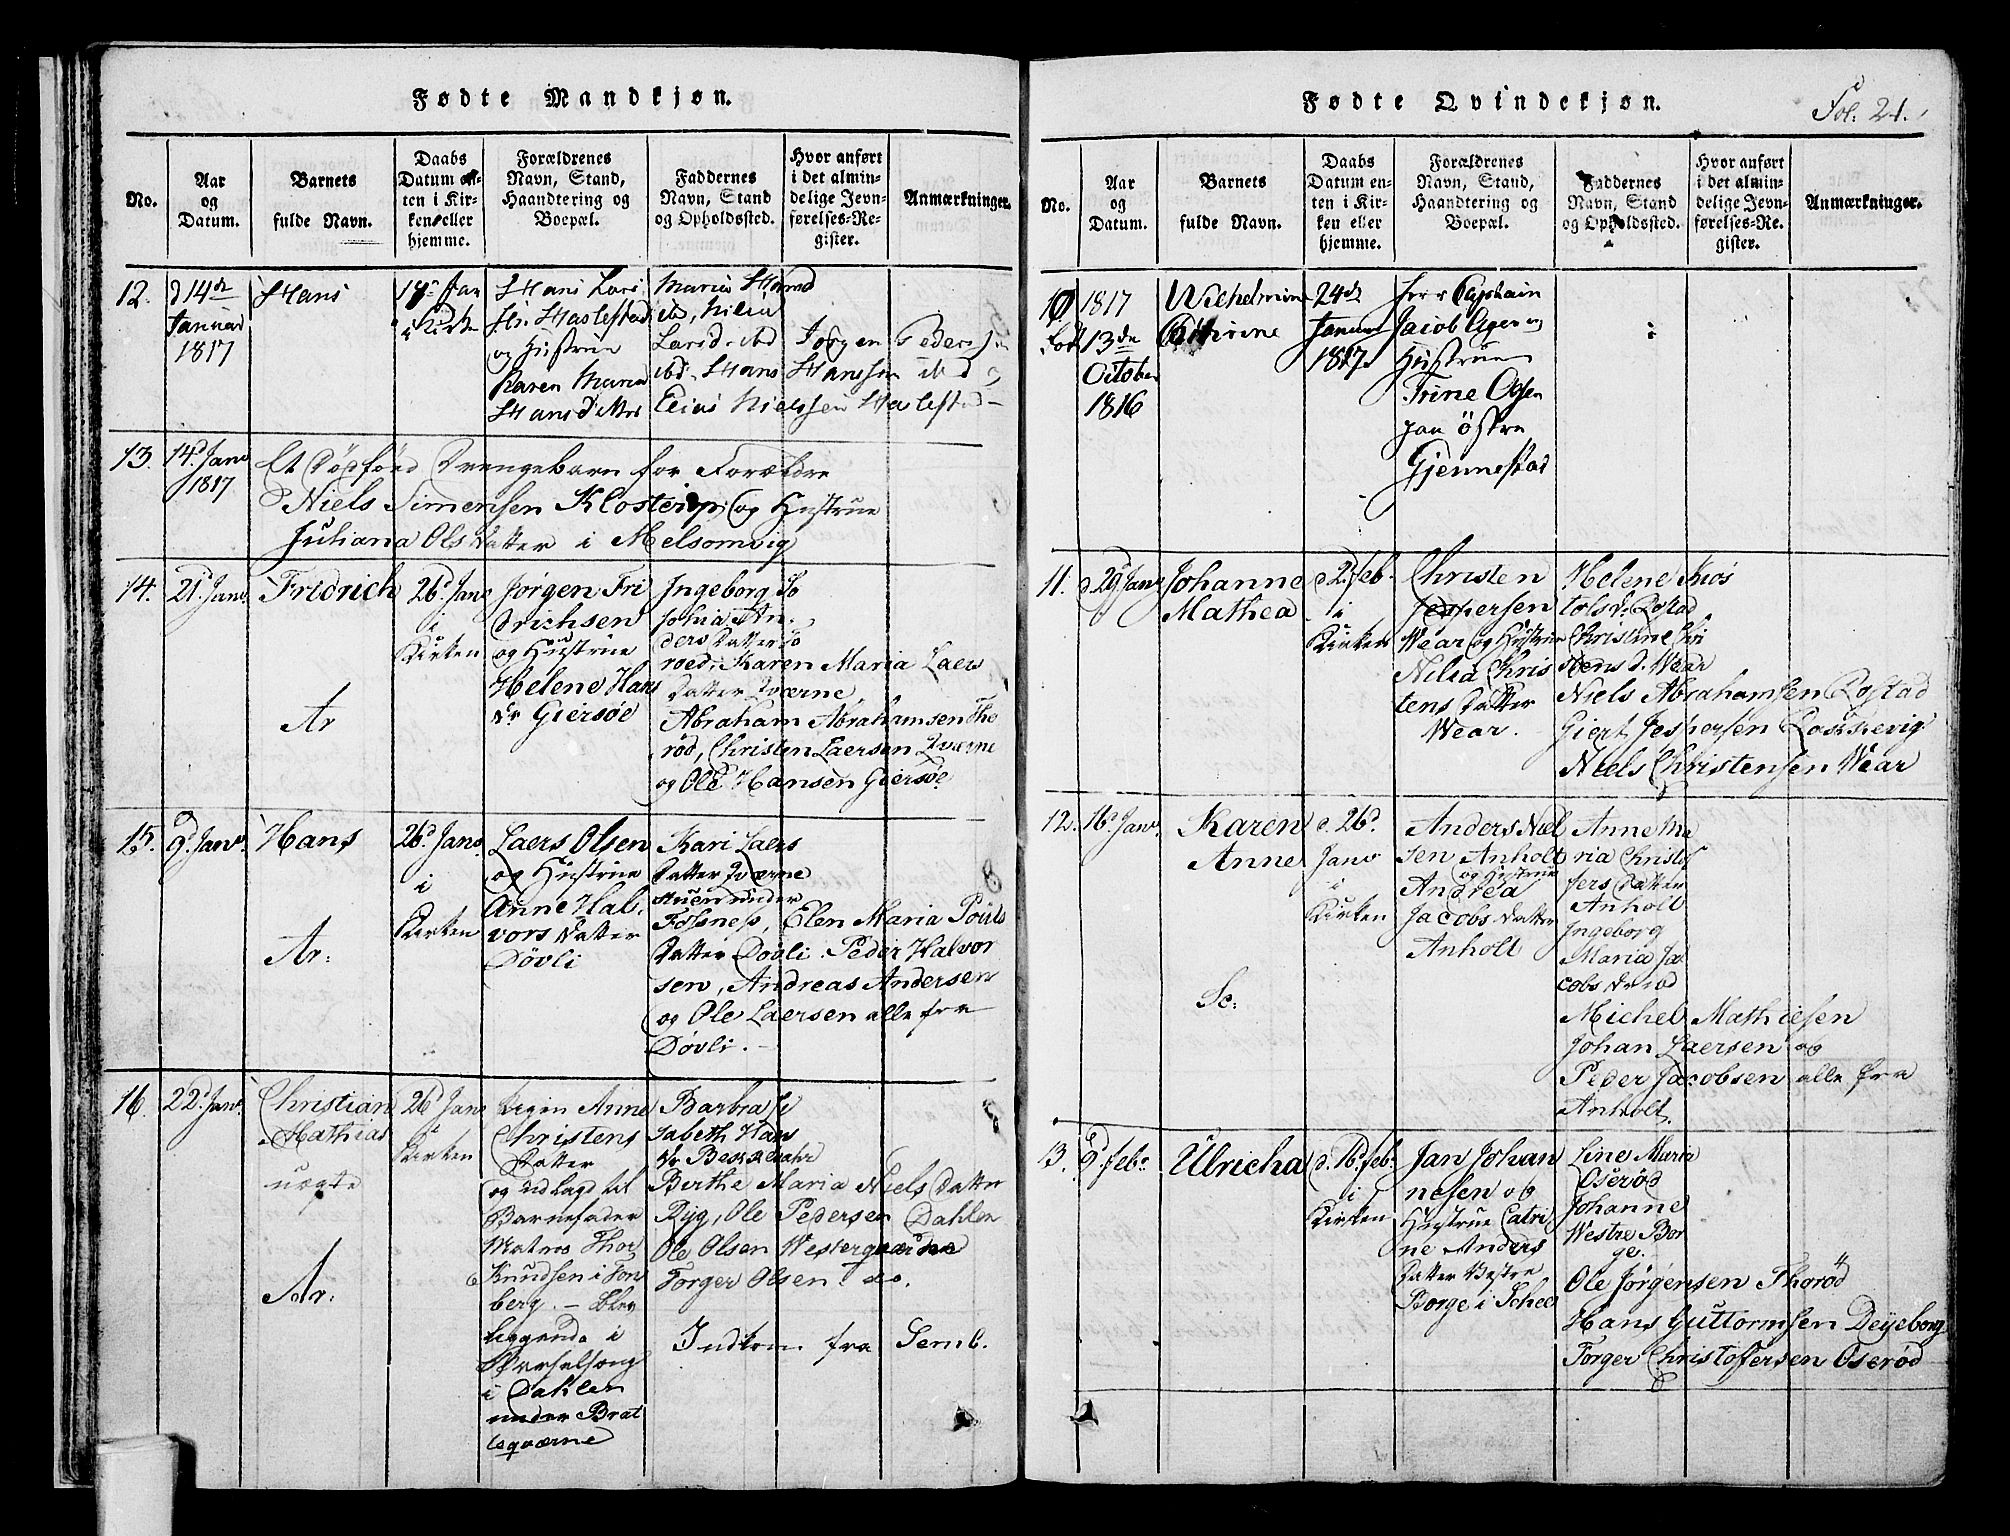 Fødte Mandkjøn.
No.
Aar
og
Datum.
Barnets
fulde Navn.
Daabs
Datum en-
ten i Kir-
ken eller
hjemme.
Forældrenes
Navn, Stand,
Haandtering og
Boepæl.
Faddernes
Navn, Stand
og Opholdssted.
Hvor anført
i det almin-
delige Jevn-
førelses-Re-
gister.
Anmærkninger.
12.
d 14de
Januar
1817
Hans
Jan
i Kirke
Hans Lars
Haslestad
og Hustrue
Karen Maria
Hansd
Maria
Larsd. ibd Jørgen Peders
ibd. Hans Hanssen ibd
Elias Nielssen Haslestad
13.
14d. Janv
1817
Et Dødfød Drengebarn for Forældre
Niels Simensen Klosterip og Hustrue
Juliana Olsdatter i Melsomvig
14.
21d Janv.
Fridrich
Ar
26d Janv
i
Kirken
Jørgen Fri
drichsen
og Hustrue
Helene Hans
dr Giersøe
Ingeborg So
phia An-
ders datter Sö
roed, Karen Maria Laers
datter Qværne
Abraham Abrahamsen Tho
rød, Christen Laersen Qværne
og Ole Hansen Giersøe
15.
9d. Janv.
Hans
Ar:
26d Janv.
i
Kirken
Laers Olsen
og Hustrue
Anne Hal-
vors datter
Døvli
Kari Laers
datter Qværne
stuen under
Fossnes, Elen Maria Pouls
datter Døvli. Peder Halvor
sen, Andreas Andersen
og Ole Laersen alle fra
Døvli.
16.
22d Janv.
Christian
Mathias
uægte
Ar:
26d Janv
i
Kirken
Pigen Anne
Christens
datter
og udlagt til
Barnefader
Matros Thor
Knudsen i Ton
berg. – blev
liggende i
Barselseng
i Dahlen
under Brat
sqværne
Barbra Li
sabeth Hans
dr Bekkelvahr
Berthe Maria Niels datter
Ryg, Ole Pedersen Dahlen
Ole Olsen Westerqværne
Torger Olsen do.
Indkom fra Semb.
Fødte Qvindekjøn.
Fol: 21.
No.
Aar
og
Datum.
Barnets
fulde Navn.
Daabs
Datum en-
ten i Kir-
ken eller
hjemme.
Forældrenes
Navn, Stand,
Haandtering og
Boepæl.
Faddernes
Navn, Stand
og Opholdssted.
Hvor anført
i det almin-
delige Jevn-
førelses-Re-
gister.
Anmærkninger.
10
1817
Fød 13de
October
1816
Wilhelmine
Cathrine
24de
Januar
1817.
Herr Captain
Jacob Ager og
Hustrue
Trine Olsen
paa Østre
Gjennestad
11.
d 29d Janv
Johanne
Mathea
d 2d feb.
i
Kirken
Christen
Jespersen
Wear og Hustrue
Nilia Chris
tens datter
Wear.
Helene Kris
tofsdr. Rostad
Christine Kri
stens d. Wear
Niels Abrahamsen Rostad
Giert Jespersen Rakkevig
Niels Christensen Wear
12.
16d Janv.
Karen
Anne
Se:
d. 26d.
Janv
i
Kirken
Anders Niel
sen Anholt
og Hustrue
Andrea
Jacobs datter
Anholt
Anne Ma
ria Christof
fers datter
Anholt
Ingeborg
Maria Ja
cobs dr ibd
Michel Mathiesen
Johan Laersen og
Peder Jacobsen alle fra
Anholt.
13.
9d feb.
Ulricha
d. 16d feb.
i
Kirken
Jan Johan
nesen og
Hustrue Catri
ne Anders
datter Vestre
Borge i Schee
Line Maria
Oserød
Johanne
Westre Bor
ge.
Ole Jørgensen Thorød
Hans Guttormsen Deyeborg
Torger Christoffersen Oserød